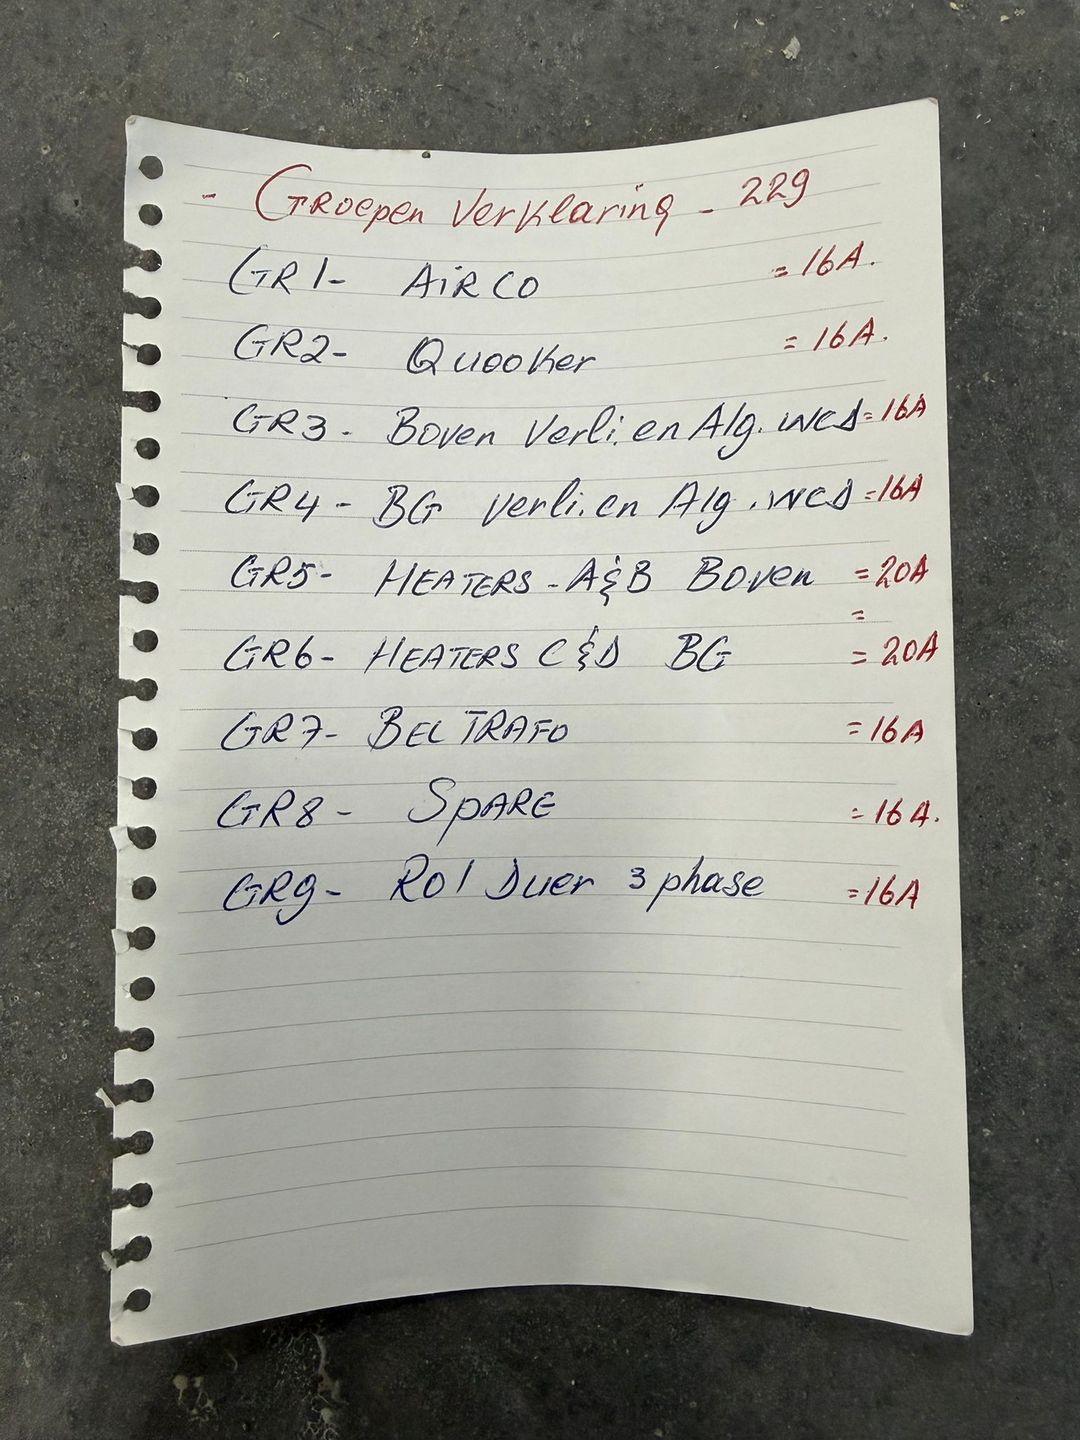 - Groepen Verklaring - 229
GR1- AiRCO = 16A.
GR2- Quooker = 16A.
GR3- Boven Verli. en Alg. WCD = 16A
GR4- BG Verli. en Alg. WCD = 16A
GR5- HEATERS - A&B Boven = 20A
=
GR6- HEATERS C&D BG = 20A
GR7- BEL TRAFO = 16A
GR8- SPARE = 16A.
GR9- Rol Duer 3 phase = 16A